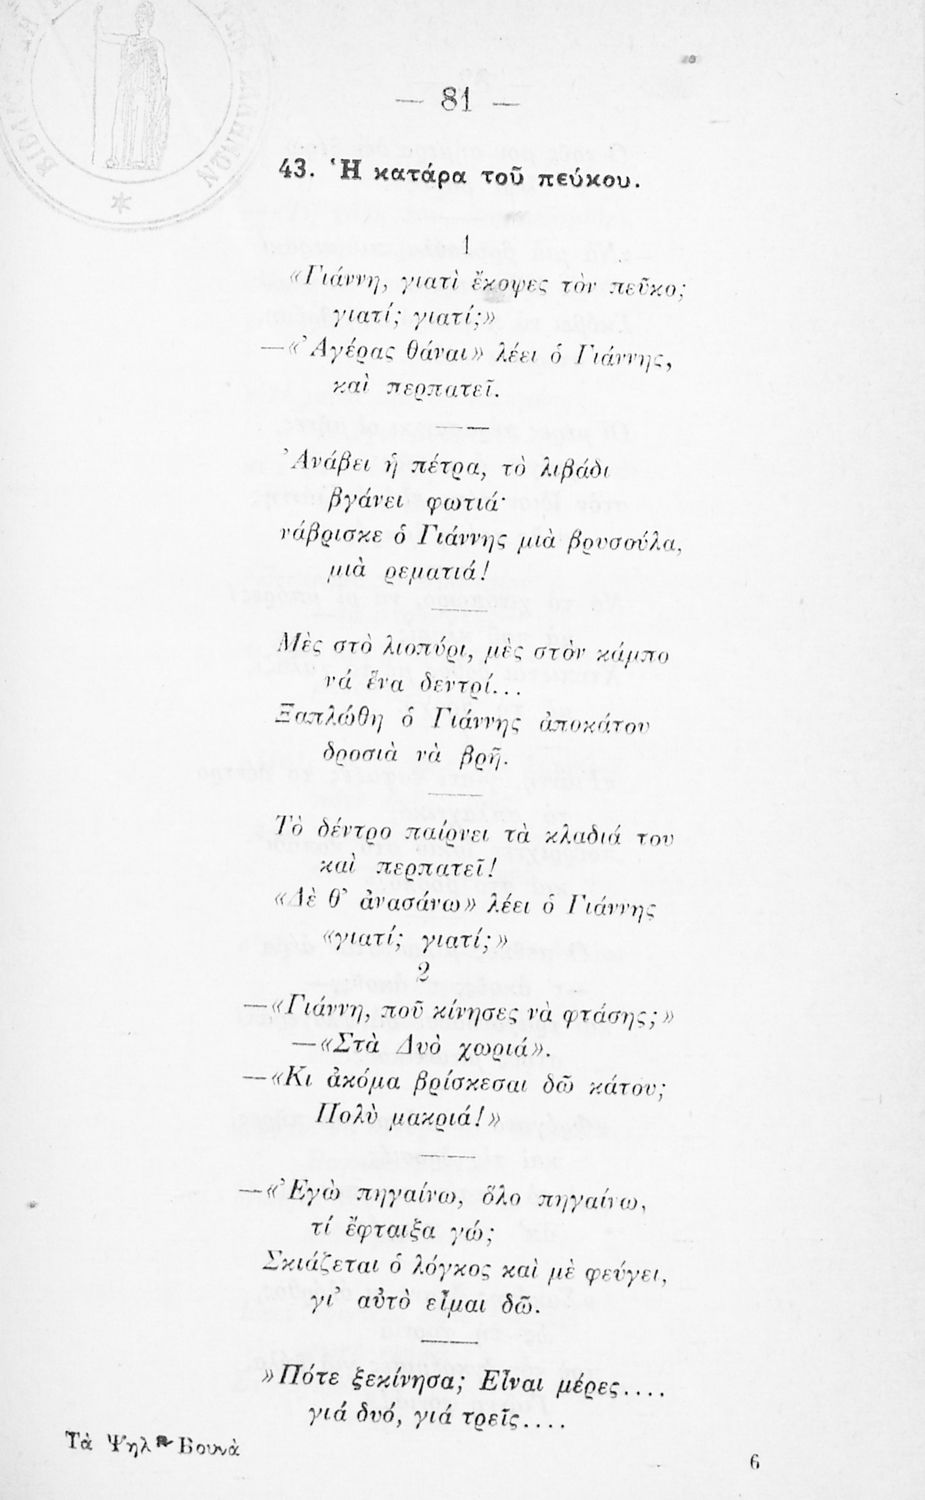 — 81 —
43. Ἡ κατάρα τοῦ πεύκου.
1
«Γιάννη, γιατὶ ἔκοψες τὸν πεῦκο;
γιατί; γιατί;»
—«Ἀγέρας θάναι» λέει ὁ Γιάννης,
καὶ περπατεῖ.
Ἀνάβει ἡ πέτρα, τὸ λιβάδι
βγάνει φωτιά·
νάβρισκε ὁ Γιάννης μιὰ βρυσούλα,
μιὰ ρεματιά!
Μὲς στὸ λιοπύρι, μὲς στὸν κάμπο
νά ἕνα δεντρί...
Ξαπλώθη ὁ Γιάννης ἀποκάτου
δροσιὰ νὰ βρῇ.
Τὸ δέντρο παίρνει τὰ κλαδιά του
καὶ περπατεῖ!
«Δὲ θ’ ἀνασάνω» λέει ὁ Γιάννης
«γιατί; γιατί;»
2
—«Γιάννη, ποῦ κίνησες νὰ φτάσης;»
—«Στὰ Δυὸ χωριά».
—«Κι ἀκόμα βρίσκεσαι δῶ κάτου;
Πολὺ μακριά!»
—«Ἐγὼ πηγαίνω, ὅλο πηγαίνω,
τί ἔφταιξα γώ;
Σκιάζεται ὁ λόγκος καὶ μὲ φεύγει,
γι’ αὐτὸ εἶμαι δῶ.
»Πότε ξεκίνησα; Εἶναι μέρες....
γιά δυό, γιά τρεῖς....
Τὰ Ψηλὰ Βουνὰ
6